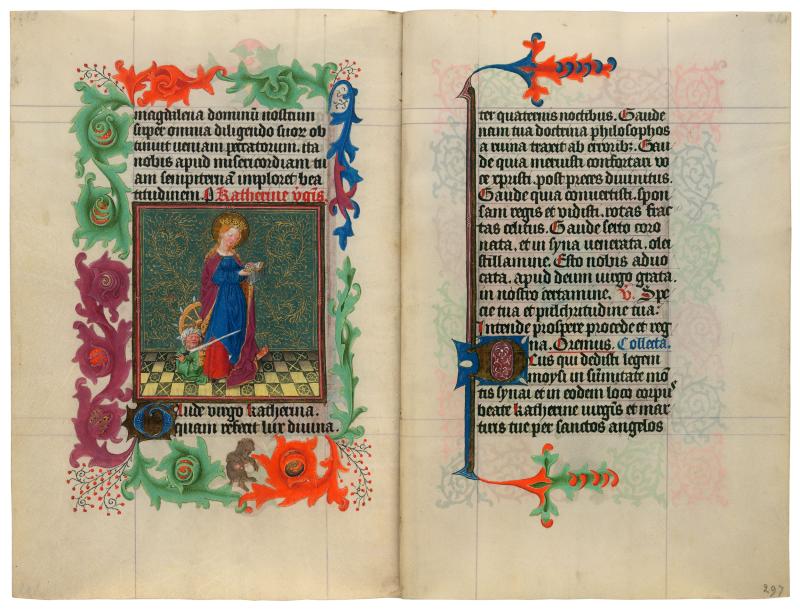 magdalena dominū nostrum
super omnia diligendo suor ob
tinuit veniam peccatorum. ita
nobis apud misericordiam tu
am sempiternā imploret bea
titudinem. Katherine v̄gīs.
Gaude virgo katherina.
quam refecit lux divina.
ter quaternis noctibus. Gaude
nam tua doctrina philosophos
a ruina traxit ab erroribꝫ. Gau
de quia meruisti confortari vo
ce xpristi. post preces divinitus.
Gaude quia convertisti. spon
sam regis et vidisti. rotas frac
tas celitus. Gaude serto coro
nata. et in syna venerata. olei
stillamine. Esto nobis advo
cata. apud deum virgo grata.
in nostro certamine. V. Spe
cie tua et pulchritudine tua.
Intende prospere procede et reg
na. Oremus. Collecta.
Deus qui dedisti legem
moysi in sūmitate mō
tis synai et in eodem loco corpꝰ
beate katherine virginis et mar
tiris tue per sanctos angelos
297